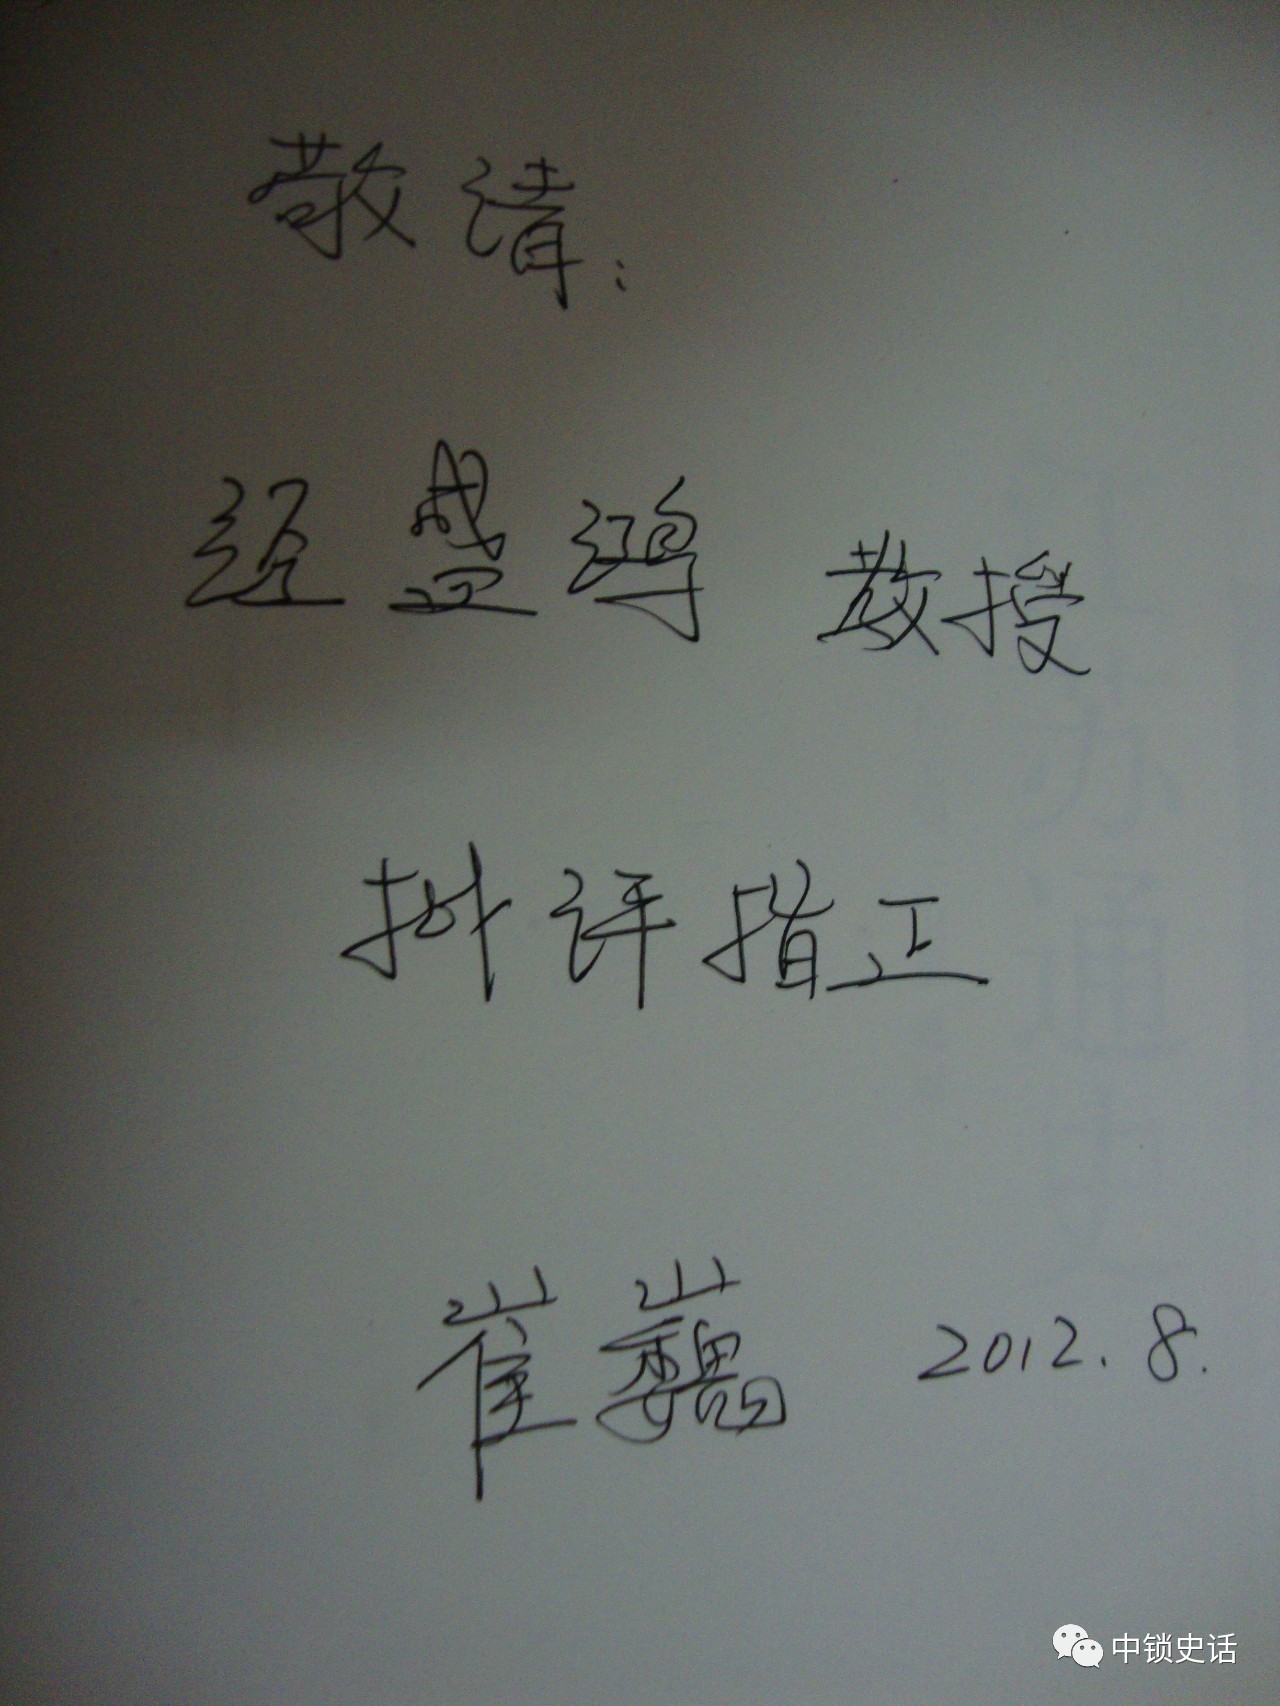 敬请:
经盛鸿 教授
批评指正
崔巍 2012.8.
中锁史话